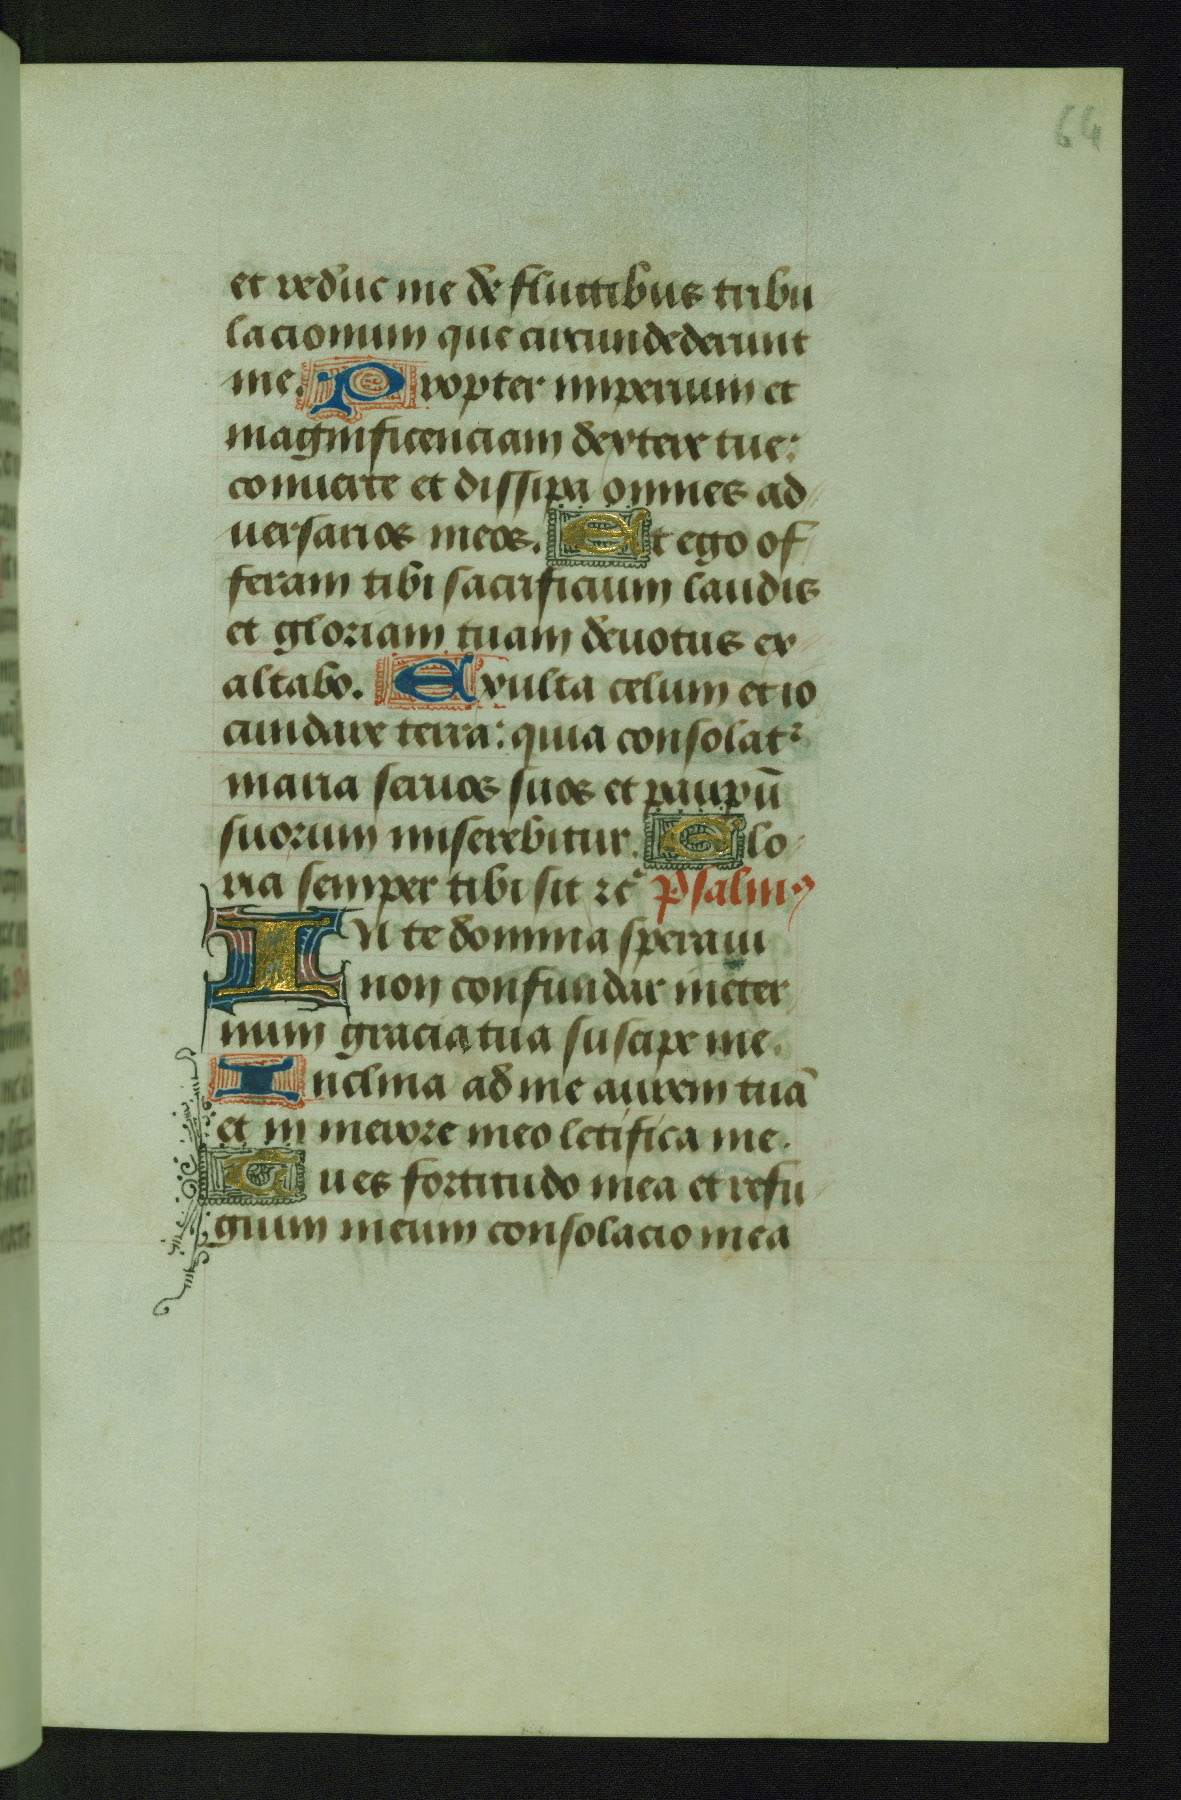 64
et reduc me de fluctibus tribu
lacionum que circundederunt
me. Propter imperium et
magnificenciam dextere tue:
conuerte et dissipa omnes ad
versarios meos. Et ego of
feram tibi sacrificium laudis
et gloriam tuam deuotus ex
altabo. Exulta celum et io
cundare terra: quia consolatꝛ
maria seruos suos et paupū
suorum miserebitur. Glo
ria semper tibi sit ⁊c̄ Psalmꝰ
In te domina speraui
non confundar in eter
num gracia tua suscipe me.
Inclina ad me aurem tuā
et in merore meo letifica me.
Tu es fortitudo mea et refu
gium meum consolacio mea